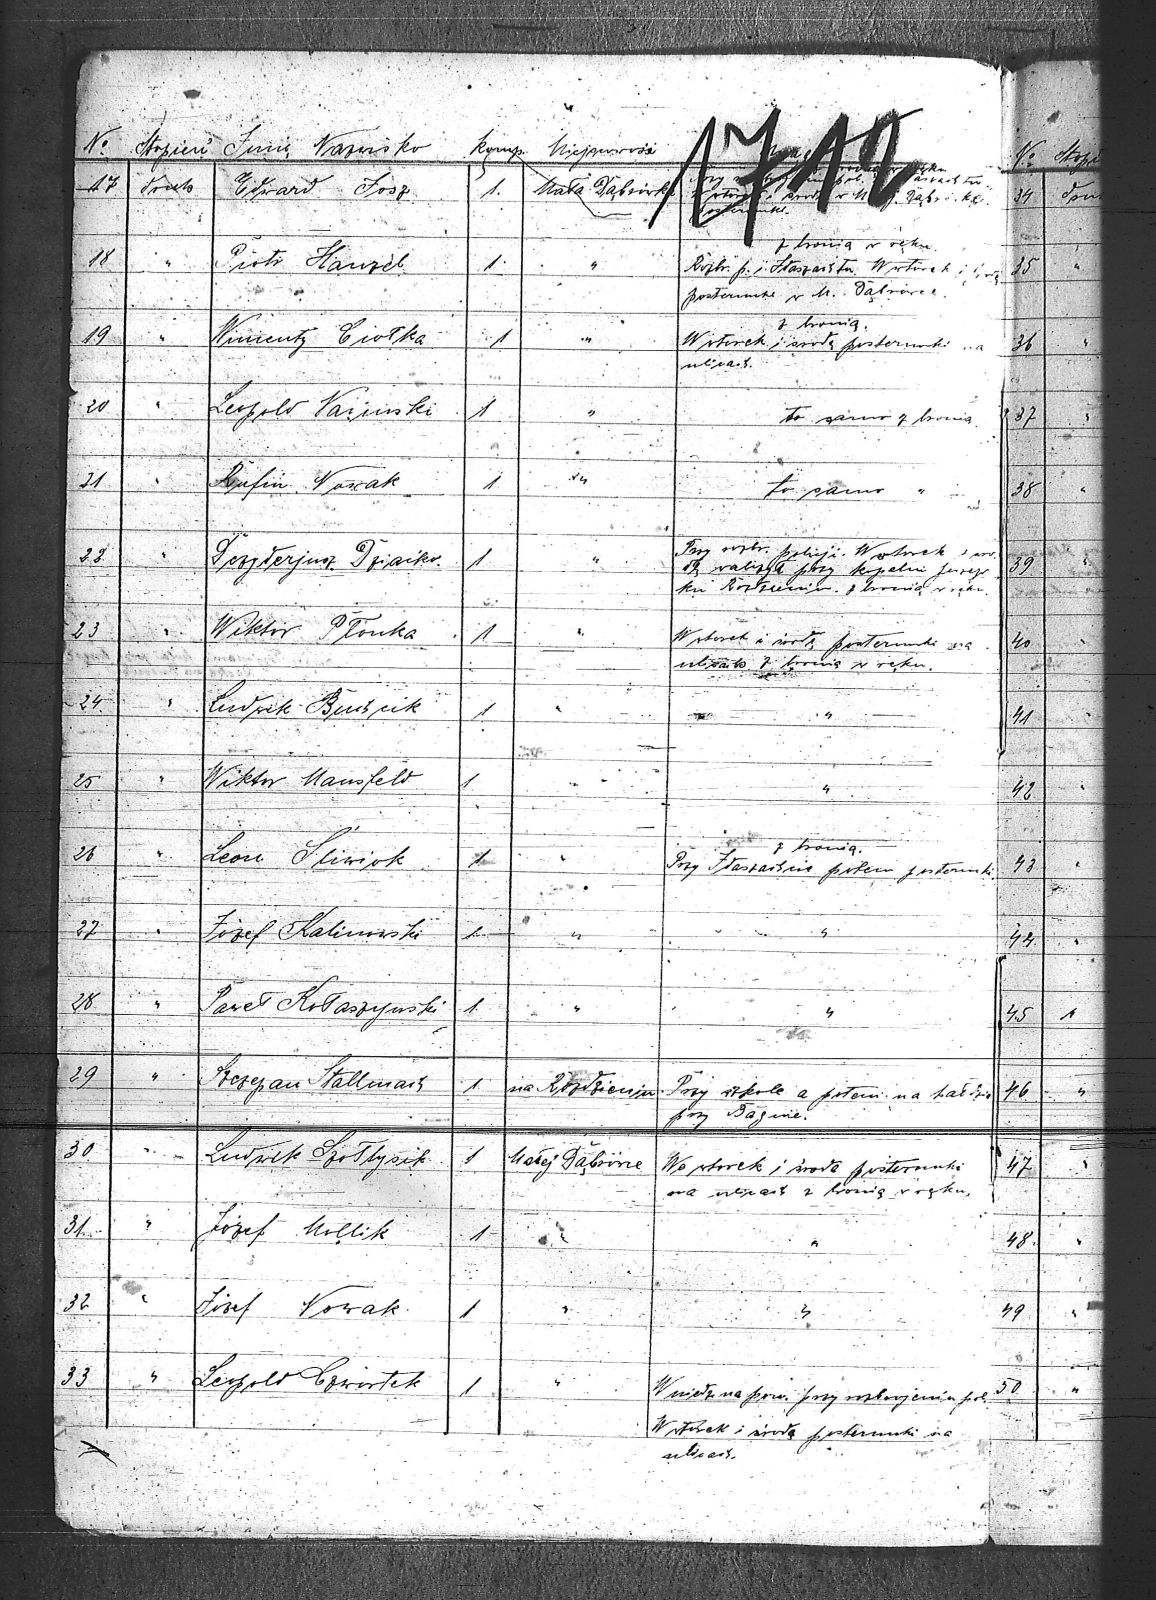 No Stopień Imię Nazwisko komp. Miejscowość
17 Edward Josz 1. Mała Dąbrówka
1712
z bronią w ręku
18 " Piotr Hanzel 1 "
posterunki w M. Dąbrówce.
z bronią.
19 " Wincenty Ciołka 1 " Wtorek i środę posterunki na
ulicach.
20 " Leopold 1 " to samo z bronią
21 " Rufin Nowak 1 " to samo "
22 " 1 " Przy rozbr. policji. Wtorek i śro-
dę przy kopalni
z bronią w ręku.
23 " Wiktor Płonka 1 " Wtorek i środę posterunki na
ulicach z bronią w ręku.
24 " Ludwik 1 " "
25 " Wiktor Mansfeld 1 " "
z bronią.
26 " Leon Śliwiok 1 " Przy potem posterunki
27 " Józef Kalinowski 1 " "
28 " Paweł Kołaszynski 1 " "
29 " Szczepan Stallmach 1 na Roździeniu Przy szkole a potem na hałdzie
przy Bagnie.
30 " Ludwik Szołtysik 1 Małej Dąbrówce We wtorek i środa posterunki
na ulicach z bronią w ręku.
31 " Józef Mollik 1 " "
32 " Józef Nowak 1 " "
33 " Leopold Czwórtek 1 " W niedz. na pon. przy rozbrojeniu pol.
Wtorek i środa posterunki na
ulicach.
No
34
35 "
36 "
37 "
38 "
39 "
40 "
41 "
42 "
43 "
44 "
45 "
46 "
47 "
48 "
49 "
50 "